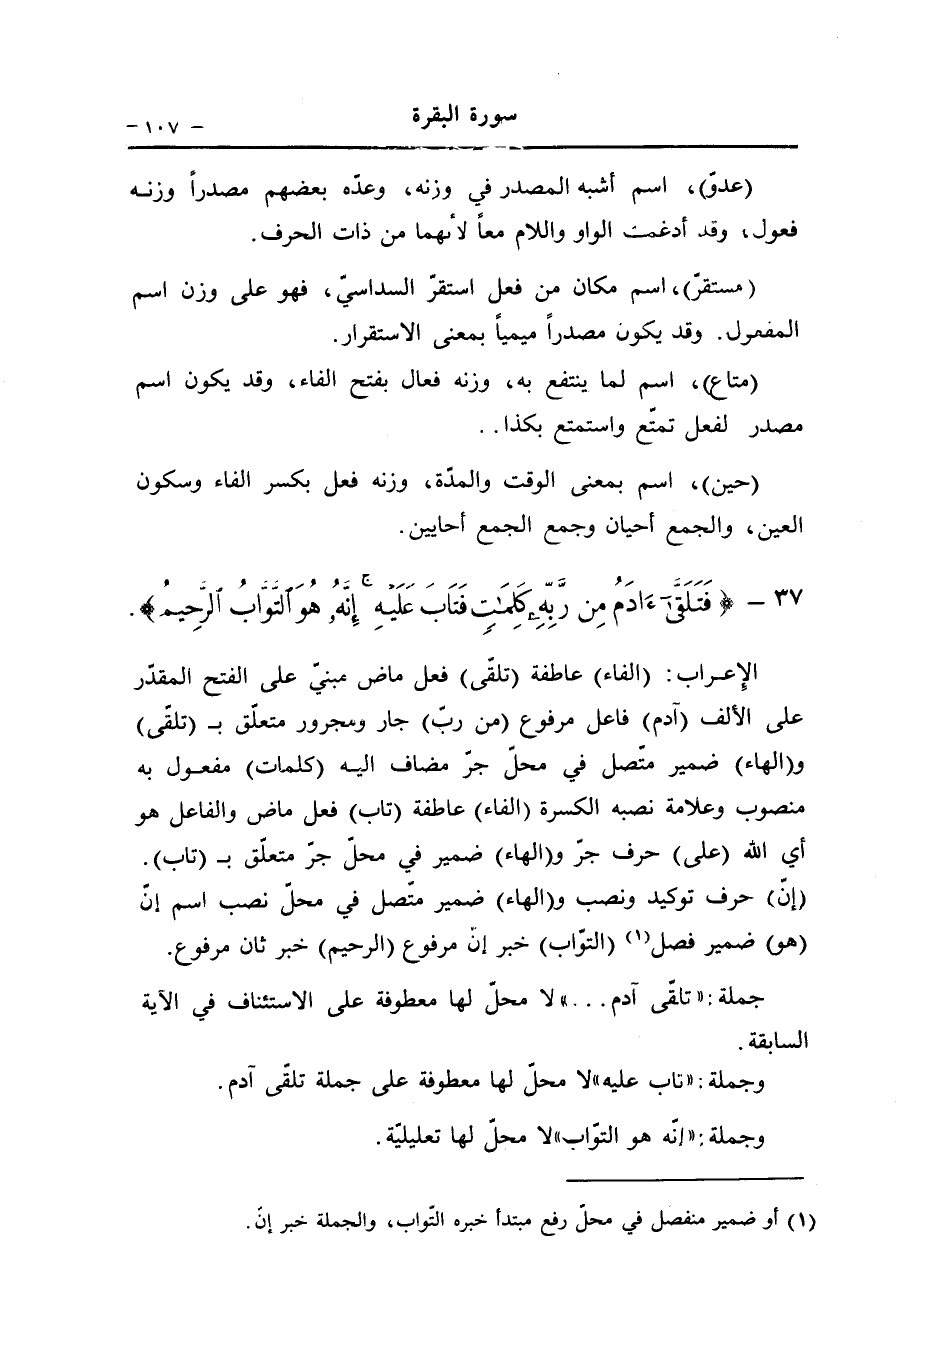 سورة البقرة
- ١٠٧ -
(عدوّ)، اسم أشبه المصدر في وزنه، وعدّه بعضهم مصدراً وزنه
فعول، وقد أدغمت الواو واللام معاً لأنهما من ذات الحرف.
(مستقرّ)، اسم مكان من فعل استقرّ السداسيّ، فهو على وزن اسم
المفعول. وقد يكون مصدراً ميمياً بمعنى الاستقرار.
(متاع)، اسم لما ينتفع به، وزنه فعال بفتح الفاء، وقد يكون اسم
مصدر لفعل تمتّع واستمتع بكذا..
(حين)، اسم بمعنى الوقت والمدّة، وزنه فعل بكسر الفاء وسكون
العين، والجمع أحيان وجمع الجمع أحايين.
٣٧ - ﴿فَتَلَقَّىٰٓ ءَادَمُ مِن رَّبِّهِۦ كَلِمَٰتٍ فَتَابَ عَلَيْهِ ۚ إِنَّهُۥ هُوَ ٱلتَّوَّابُ ٱلرَّحِيمُ﴾.
الإعراب: (الفاء) عاطفة (تلقّى) فعل ماض مبنيّ على الفتح المقدّر
على الألف (آدم) فاعل مرفوع (من ربّ) جار ومجرور متعلّق بـ (تلقّى)
و(الهاء) ضمير متّصل في محلّ جرّ مضاف اليه (كلمات) مفعول به
منصوب وعلامة نصبه الكسرة (الفاء) عاطفة (تاب) فعل ماض والفاعل هو
أي الله (على) حرف جرّ و(الهاء) ضمير في محلّ جرّ متعلّق بـ (تاب).
(إنّ) حرف توكيد ونصب و(الهاء) ضمير متّصل في محلّ نصب اسم إنّ
(هو) ضمير فصل(١) (التوّاب) خبر إنّ مرفوع (الرحيم) خبر ثان مرفوع.
جملة: «تلقّى آدم...» لا محلّ لها معطوفة على الاستئناف في الآية
السابقة.
وجملة: «تاب عليه» لا محلّ لها معطوفة على جملة تلقّى آدم.
وجملة: «إنّه هو التوّاب» لا محلّ لها تعليليّة.
(١) أو ضمير منفصل في محلّ رفع مبتدأ خبره التّواب، والجملة خبر إنّ.